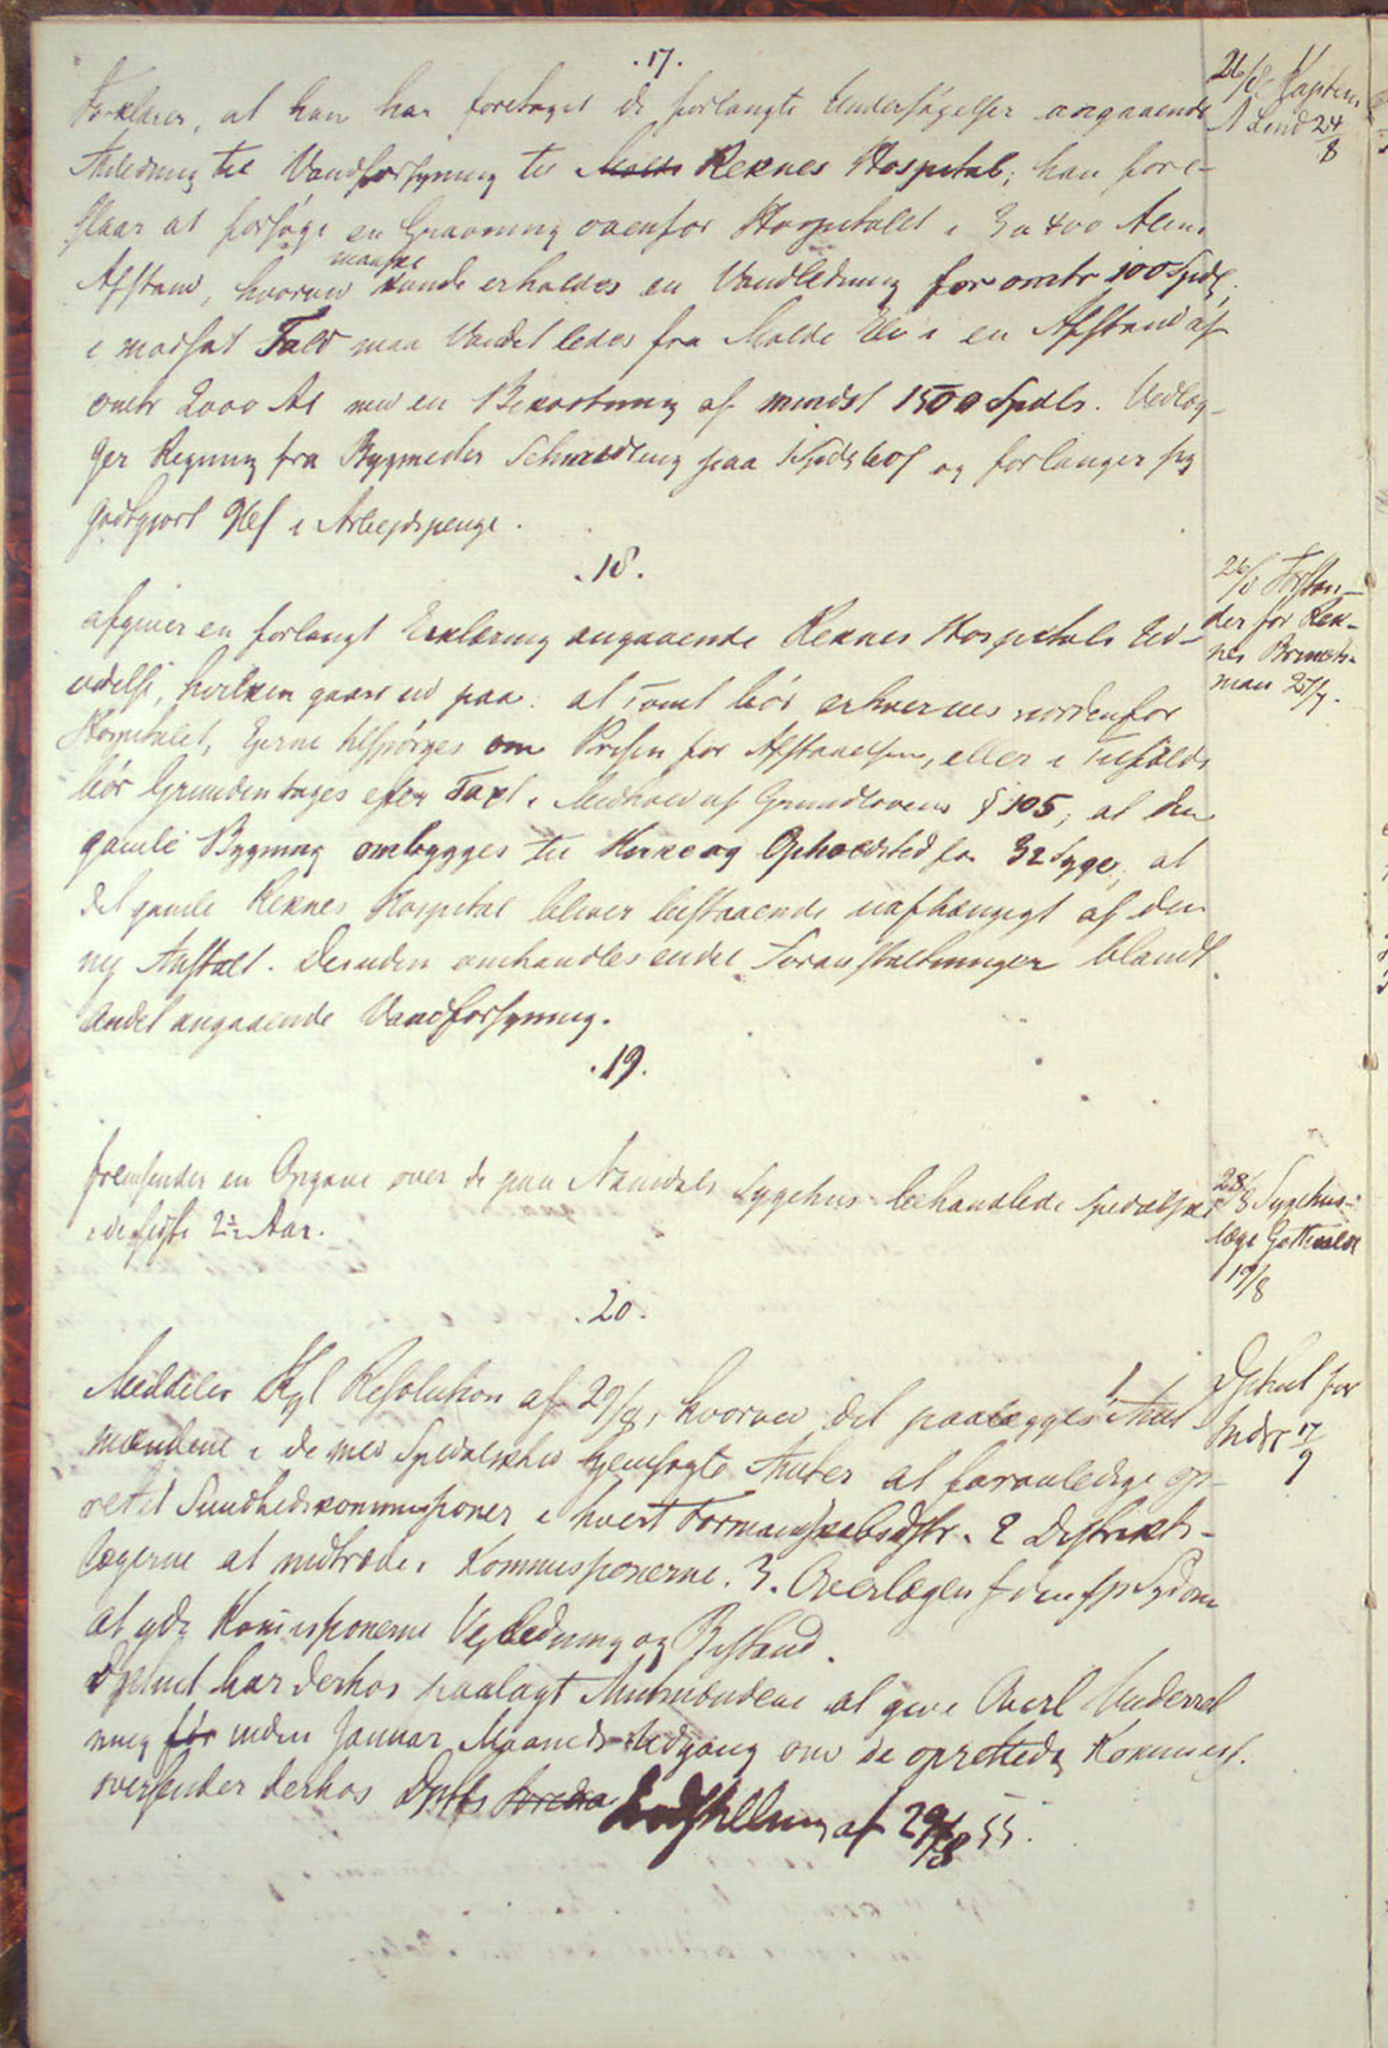 .17.
Forklarer, at han har foretaget de forlangte Undersøgelser angaaende
Anledning til Vandforsyning til Molde Reknes Hospital; han fore-
slaar at forsøge en Gravning ovenfor Hospitalet i 3 a 400 Alens
Afstand, hvorved maaske kunde erholdes en Vandledning for omtr 100 Spdl,
i modsat Fald maa Vandet ledes fra Molde Elv i en Afstand af
omtr 2000 Al med en Bekostning af mindst 1500 Spdlr. Vedlæg-
ger Regning fra Bygmester Schmedling paa og forlanger sig
godtgjort i Arbejdspenge.
26/8 Kaptein
A Lund 24/8
.18.
afgiver en forlangt Erklæring angaaende Reknes Hospitals Ud-
videlse, hvilken gaar ud paa: at Tomt bør erhverves nordenfor
Hospitalet, Ejerne tilspørges om Prisen for Afstaaelsen, eller i Tilfælde
bør Grunden tages efter Taxt i Medhold af Grundlovens § 105; at den
gamle Bygning ombygges til Kirke og Opholdsted for 32 Syge; at
det gamle Reknes Hospital bliver bestaaende uafhængigt af den
ny Anstalt. Desuden omhandles endel Foranstaltninger blandt
Andet angaaende Vandforsyning.
26/8 Forstan-
der for Rek-
nes Brinch-
man 27/7.
.19.
fremsender en Opgave over de paa Namdals Sygehus behandlede Spedalske
i de sidste 2½ Aar.
28/8 Sygehus-
læge Gottwaldt
19/8
.20.
Meddeler Kgl Resolution af 29/8, hvorved det paalægges 1, Amt
mændene i de med Spedalskhed hjemsøgte Amter at foranledige op-
rettet Sundhedskommissioner i hvert Formandskabsdistr. 2 Distrikts-
lægerne at indtræde i Kommissionerne. 3. Overlægen f den sp Sygdom
at yde Komissionerne Vejledning og Bistand.
Dptmt har derhos paalagt Amtmændene at give Overl Underret
ning før inden Januar Maaneds Udgang om de oprettede Kommiss.
oversender derhos Dptts Foredra Indstilling af 29/8 55.
Dptmt for
Indre 17/9